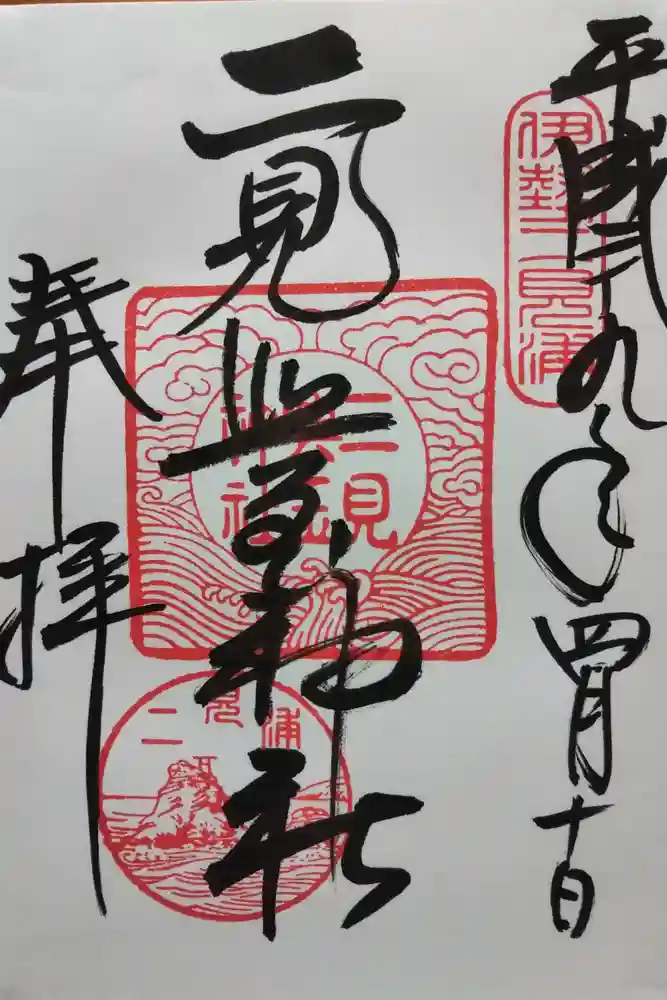 平成二九年四月十日
伊勢二見浦
二見興玉神社
二見興玉神社
二見浦
奉拝